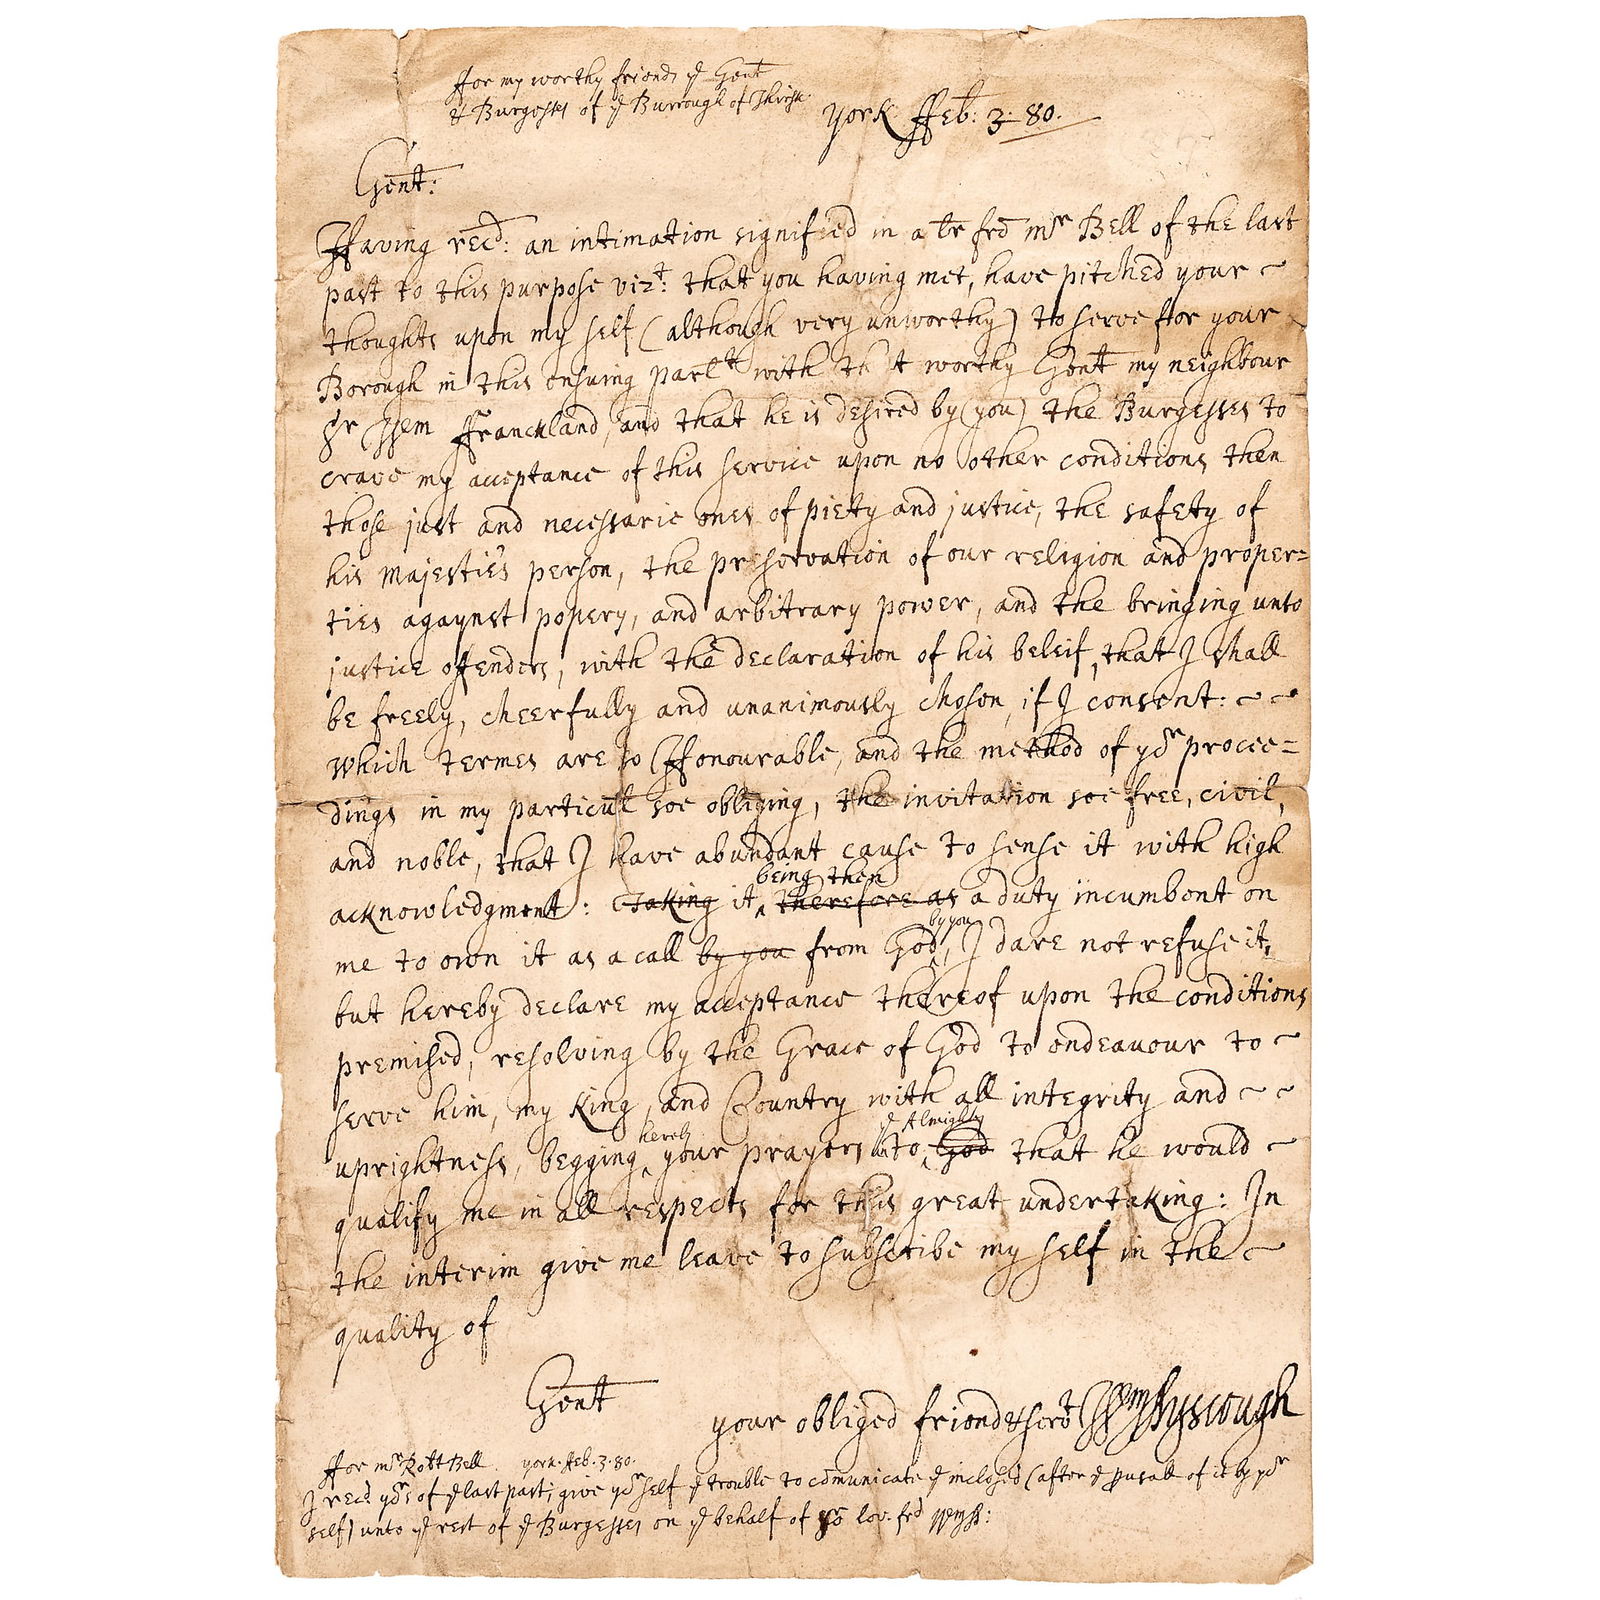 ffor my worthy friends ye Gent
& Burgesses of ye Burrough of Thirsk.
York ffeb: 3: 80.
Gent:
Having recd: an intimation signified in a lre frō mr Bell of the last
past to this purpose vizt: that you having met, have pitched your
thoughts upon my self (although very unworthy) to serve ffor your
Borough in this ensuing parlt with that worthy Gent my neighbour
Sr Wem ffranckland, and that he is desired by (you) the Burgesses to
crave my acceptance of this service upon no other conditions then
those just and necessarie ones of piety and justice, the safety of
his majestie's person, the preservation of our religion and proper=
ties agaynst popery, and arbitrary power, and the bringing unto
justice offenders, with the declaration of his beleif, that I shall
be freely, cheerfully and unanimously chosen, if I consent:
which termes are so Honourable, and the method of yor procee=
dings in my particul soe obliging, the invitation soe free, civil,
and noble, that I have abundant cause to sense it with high
being then
acknowledgment: Taking it therefore as a duty incumbent on
by you
me to own it as a call by you from God, I dare not refuse it,
but hereby declare my acceptance thereof upon the conditions
premised, resolving by the Grace of God to endeavour to
serve him, my King, and Country with all integrity and
herely ye Almighty
uprightness, begging your prayers to God that he would
qualify me in all respects for this great undertaking: In
the interim give me leave to subscribe my self in the
quality of
Gent
your obliged friend & servt Wm Ayscough
ffor mr Robt Bell york. ffeb. 3. 80.
I recd yors of ye last past; give yor self ye trouble to cōmunicate ye inclosed (after ye pusall of it by yor
self) unto ye rest of ye Burgesses on ye behalf of yor lov. frd